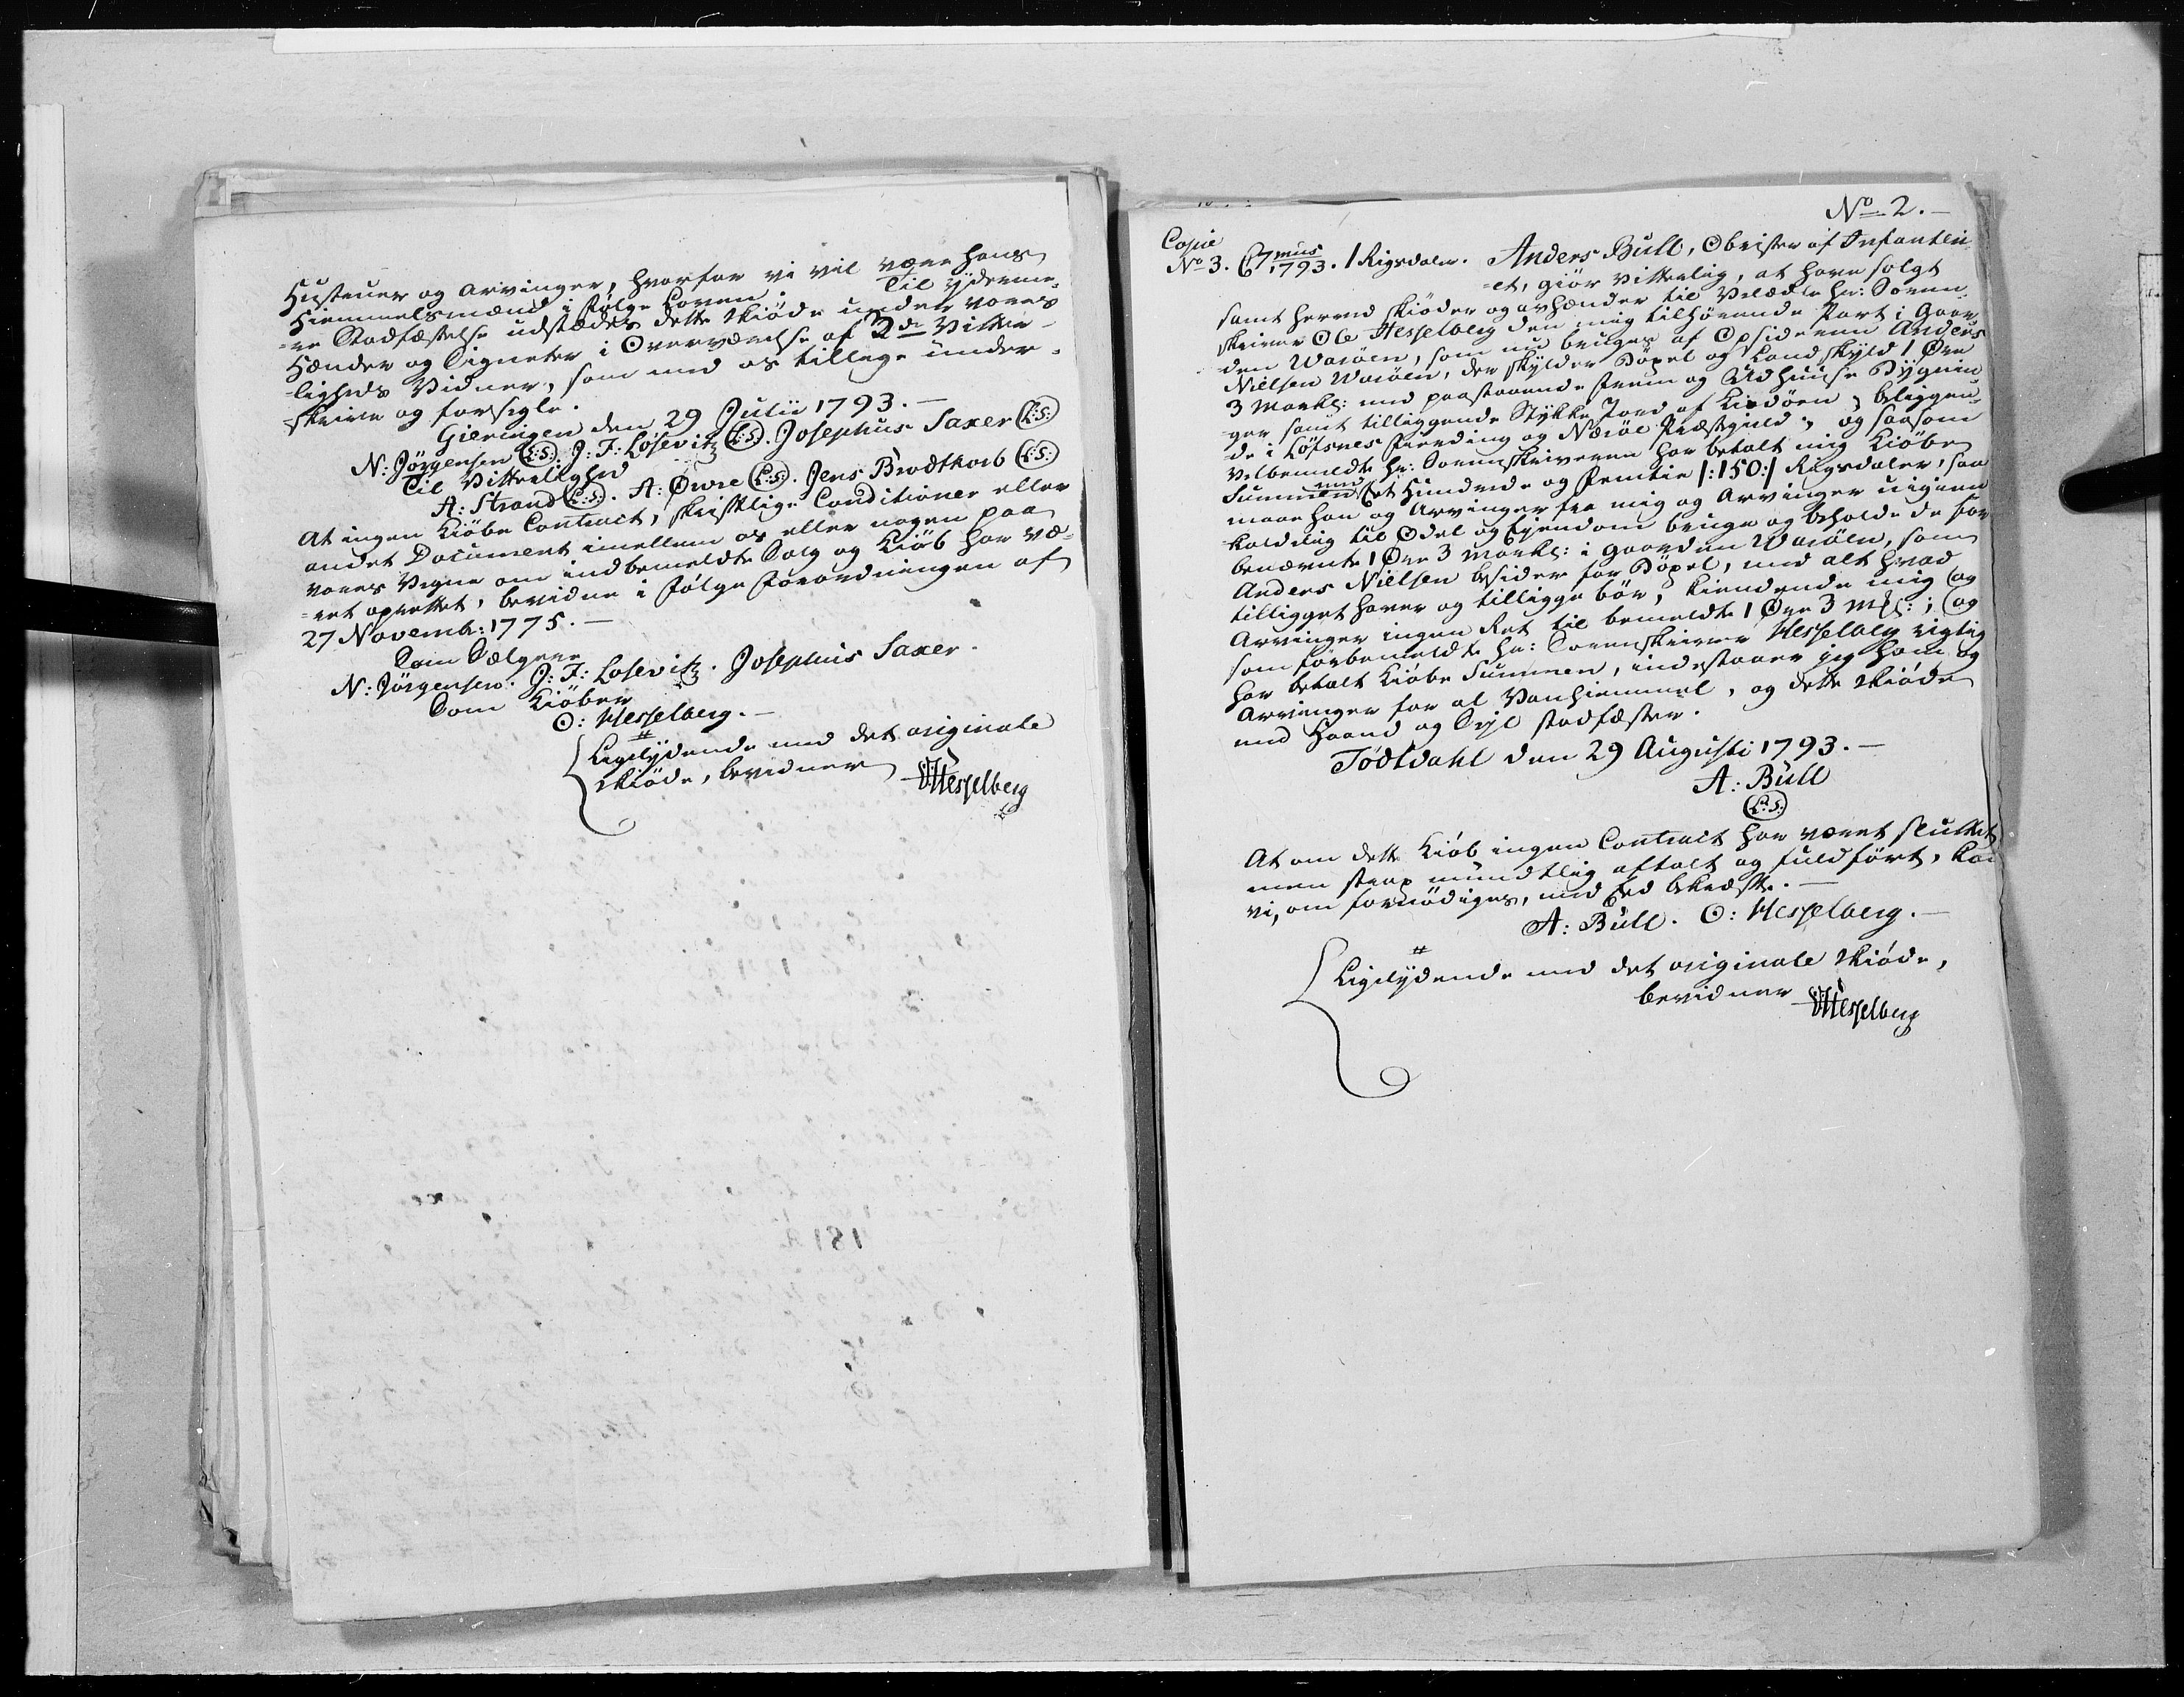 Hustruer og Arvinger, hvorfor vi vil være hans
Hiemmelsmænd i følge Loven. Til yderme¬
¬re Stadfæstelse udstædes dette Skiøde under vores
Hænder og Signeter i Overværelse af 2de Vitter¬
¬ligheds Vidner, som med os tillige under¬
¬skrive og forsegle.
Gieringen den 29 Julii 1793. —
N: Jörgensen (L:S:). J: F: Losevitz (L:S:). Josephus Saxer (L:S:)
Til Vitterlighed
A: Strand (L:S:). A: Øwre (L:S:). Jens Brodtkorb (L:S:)
At ingen Kiøbe Contract, skriftlige Conditioner eller
andet Document imellem os eller nogen paa
vores Vegne om indbemeldte Salg og Kiøb har væ¬
¬ret oprettet, bevidne i følge Forordningen af
27 Novembr: 1775. —
Som Sælgere
N: Jörgensen. J: F: Losevitz. Josephus Saxer.
Som Kiøber
O: Hesselberg. —
Ligelydende med det originale
Skiøde, bevidner
OHesselberg
No 2. —
Copie
No 3. 67mus 1793. 1 Rigsdaler. Anders Bull, Obrister af Infanteri¬
¬et, giør vitterlig, at have solgt
samt herved skiøder og avhænder til Velædle Hr: Soren¬
skriver Ole Hesselberg den mig tilhørende Part i Gaar¬
den Waiöen, som nu bruges af Opsideren Anders
Nielsen Waiöen, der skylder Böxel og Landskyld 1 Øre
3 Markl: med paastaaende Frem og Udhuuse Bygnin¬
ger samt tilliggende Stykke Jord af , beliggen¬
de i Löfsnes Fierding og Næröe Præstegield; og saasom
velbemeldte Hr: Sorenskriveren har betalt mig Kiøbe
Summen med Et Hundrede og Femtie /:150:/ Rigsdaler, saa
maae han og Arvinger fra mig og Arvinger uigien¬
kaldelig til Odel og Ejendom bruge og beholde de for
benævnte 1 Øre 3 Markl: i Gaarden Waiöen, som
Anders Nielsen besider for Böxel, med alt hvad
tilligget haver og tilligge bör, kiendende mig og
Arvinger ingen Ret til bemeldte 1 Øre 3 Mkl:; og
som forbemeldte Hr: Sorenskriver Hesselberg rigtig
har betalt Kiøbe Summen, indestaaer jeg ham og
Arvinger for al Vanhiemmel, og dette Skiøde
med Haand og Segl stadfæster.
Tödtdahl den 29 Augusti 1793. —
A: Bull
(L:S:)
At om dette Kiøb ingen Contract har været sluttet
men strax mundtlig aftalt og fuldført, kan
vi, om fornödiges, med Eed bekræfte. —
A: Bull. O: Hesselberg. —
Ligelydende med det originale Skiøde,
bevidner
OHesselberg